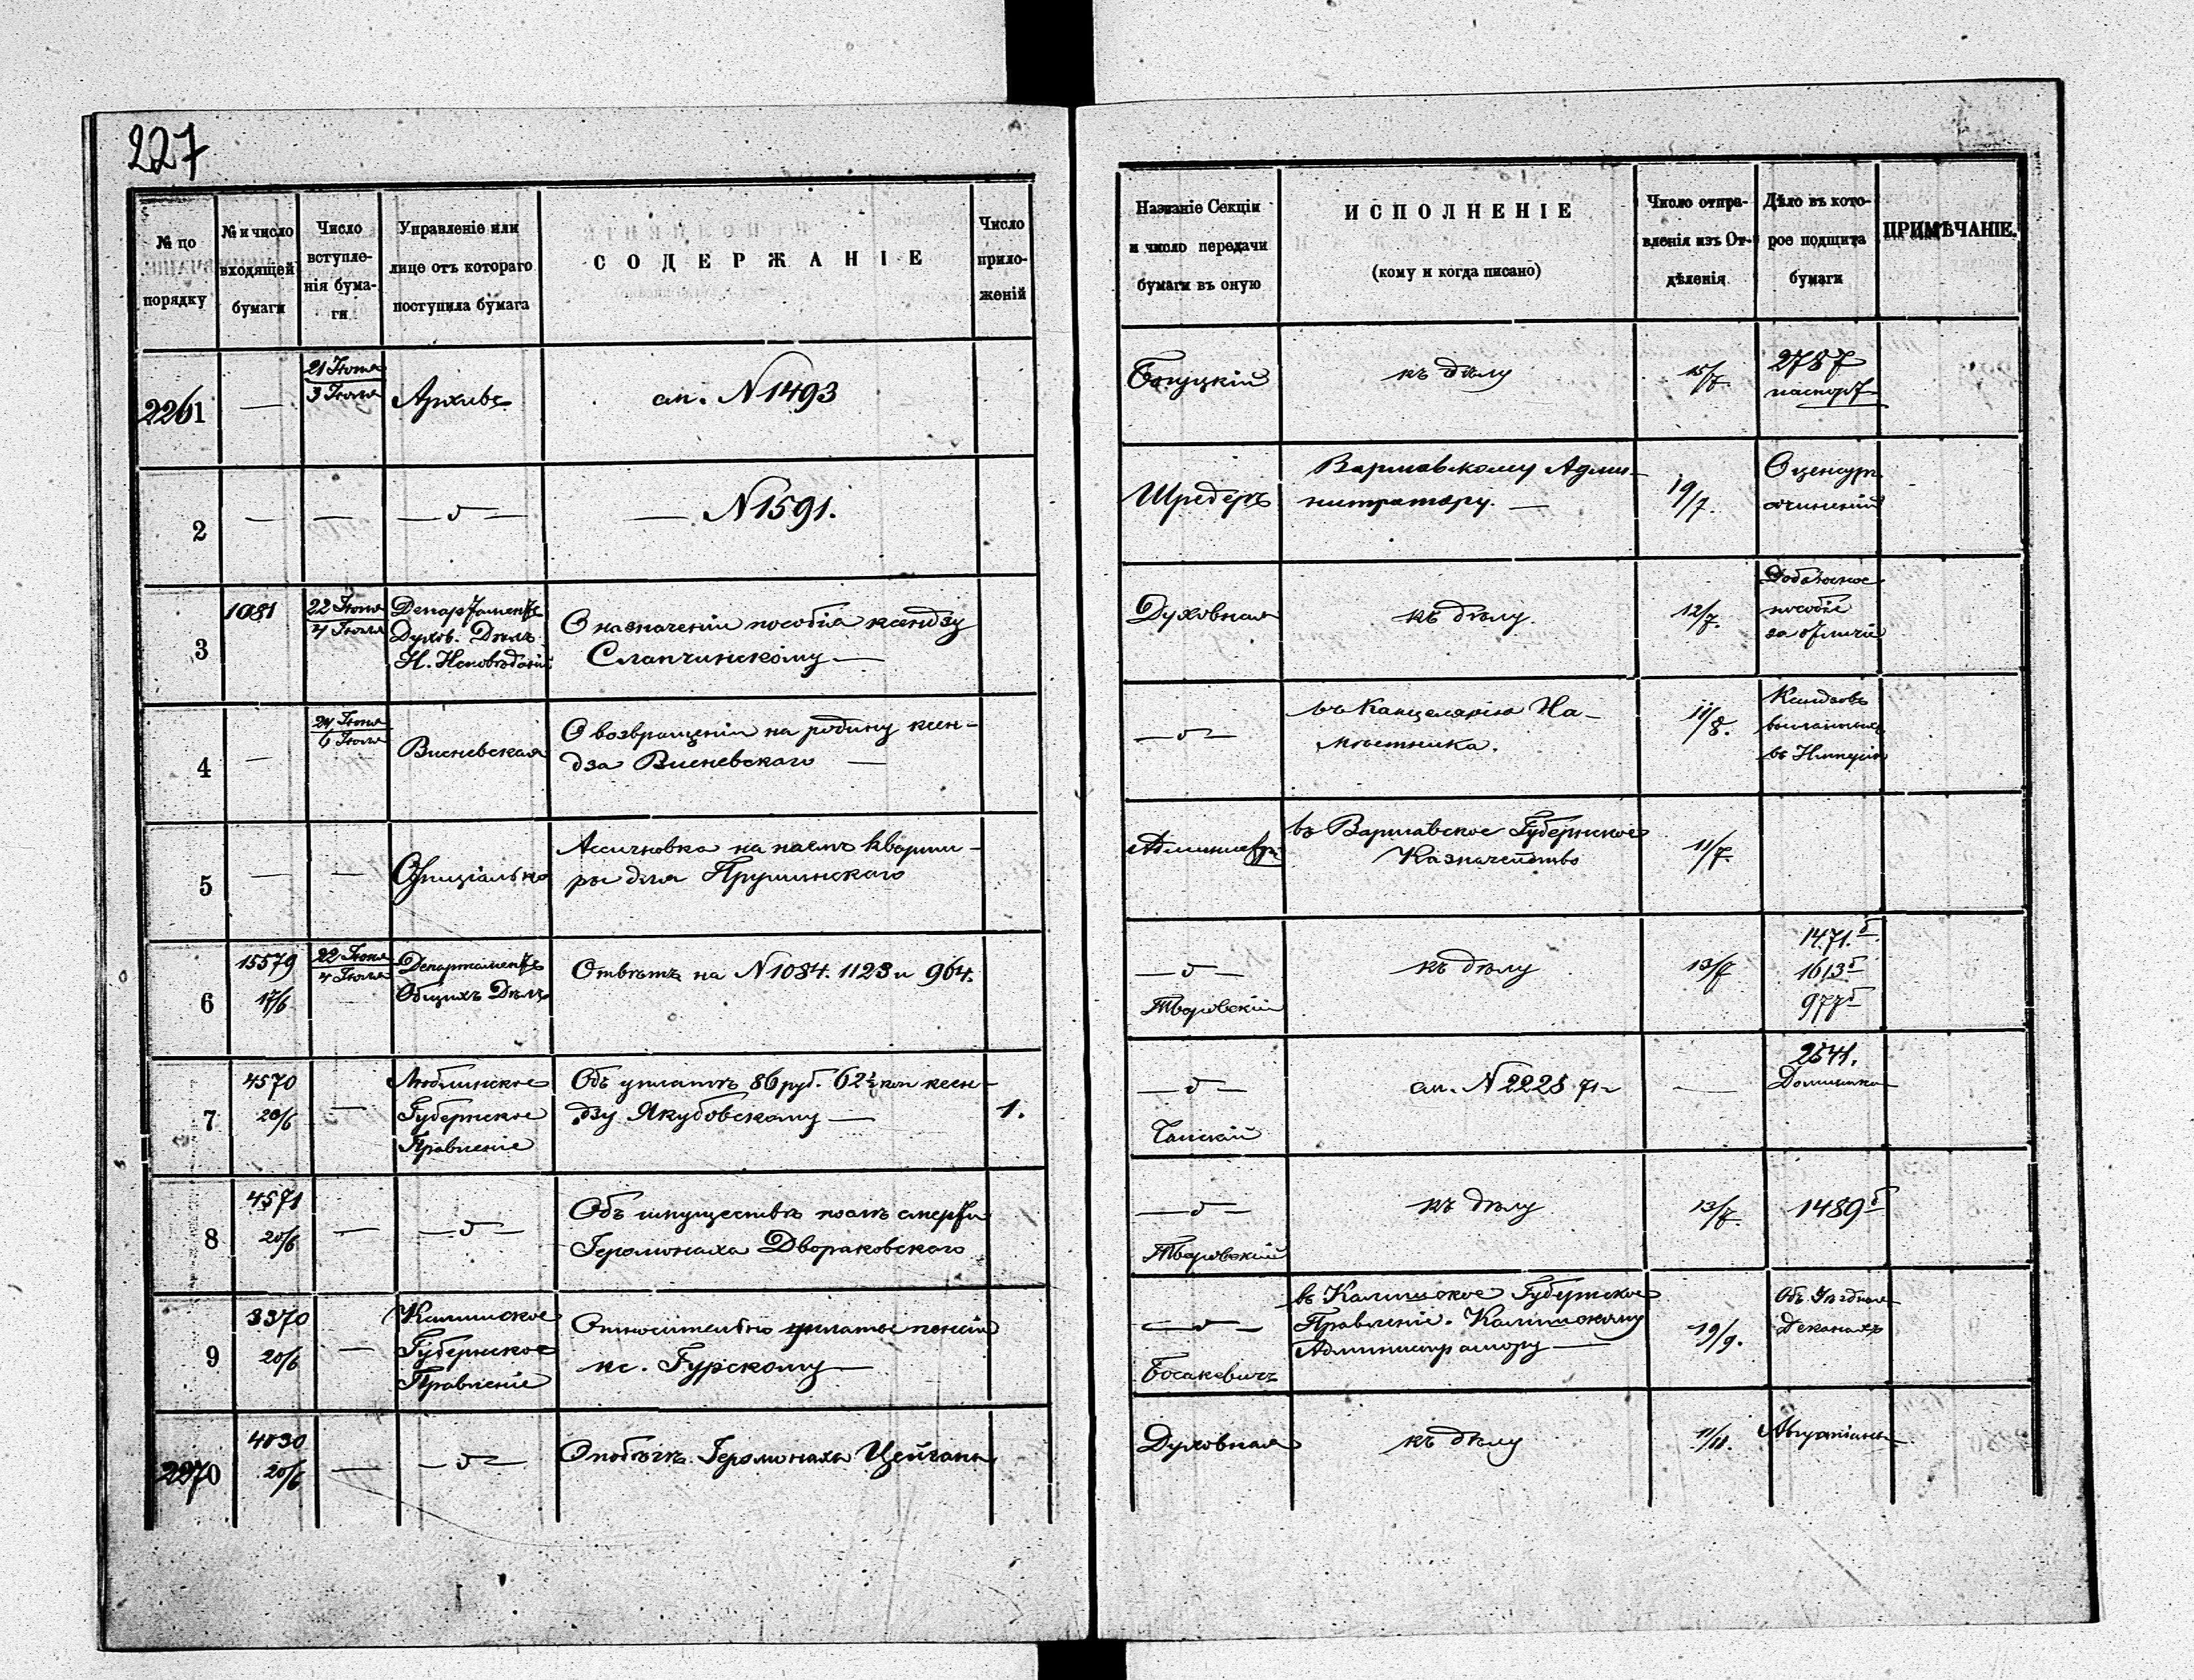 227
№ по порядку
№ и число входящей бумаги
Число вступленія бумаги
Управленіе или лице отъ котораго поступила бумага
СОДЕРЖАНІЕ
Число приложеній
Названіе Секціи и число передачи бумаги въ оную
ИСПОЛНЕНІЕ
(кому и когда писано)
Число отправленія изъ Отдѣленія
Дѣло въ которое подшита бумаги
ПРИМѢЧАНІЕ.
2261 — 21 Іюня / 3 Іюля Архивъ см. N 1493 къ дѣлу 15/7 2787
2 — — — — N 1591. Шредеръ
Варшавскому Админитратору. — 19/7. О цензурѣ
сочиненій
3 1081 22 Іюня / 4 Іюля Департаментъ
Духов. Дѣлъ
И. Исповѣданій
О назначеніи пособія ксендзу
Слапчинскому —
Духовная къ дѣлу. 12/7.
Добавочное
пособіе
за отличіе
4 — 24 Іюня / 6 Іюля Висневская
О возвращеніи на родину ксен-
дза Висневскаго —
въ Канцелярію На-
мѣстника. 11/8.
Ксендзовъ
высланныхъ
въ Имперію
5 — — Офиціально
Ассигновка на наемъ кварти-
ры для Прушинскаго
въ Варшавское Губернское
Казначейство 11/7
6 15579 17/6 22 Іюня / 4 Іюля Департаментъ
Общихъ Дѣлъ
Отвѣтъ на N 1084. 1123 и 964.
Творовскій къ дѣлу 13/7
1471.б
1613б
977б
7 4570 20/6 — Люблинское
Губернское
Правленіе
Объ уплатѣ 86 руб. 62½ коп ксен-
дзу Якубовскому — 1.
см. N 2228 — 2541.
8 4571 20/6 —
Объ имуществѣ послѣ смерти
Іеромонаха Двораковскаго
Творовскій къ дѣлу 13/7 1489б
9 3370 20/6 — Калишское
Губернское
Правленіе
Относительно уплаты пенсіи
кс. Гурскому —
Босакевичъ
въ Калишское Губернское
Правленіе. Калишскому
Администратору — 19/9.
Деканахъ
2270 4030 20/6 —
О побѣгѣ Іеромонаха
Духовная къ дѣлу 11/11.